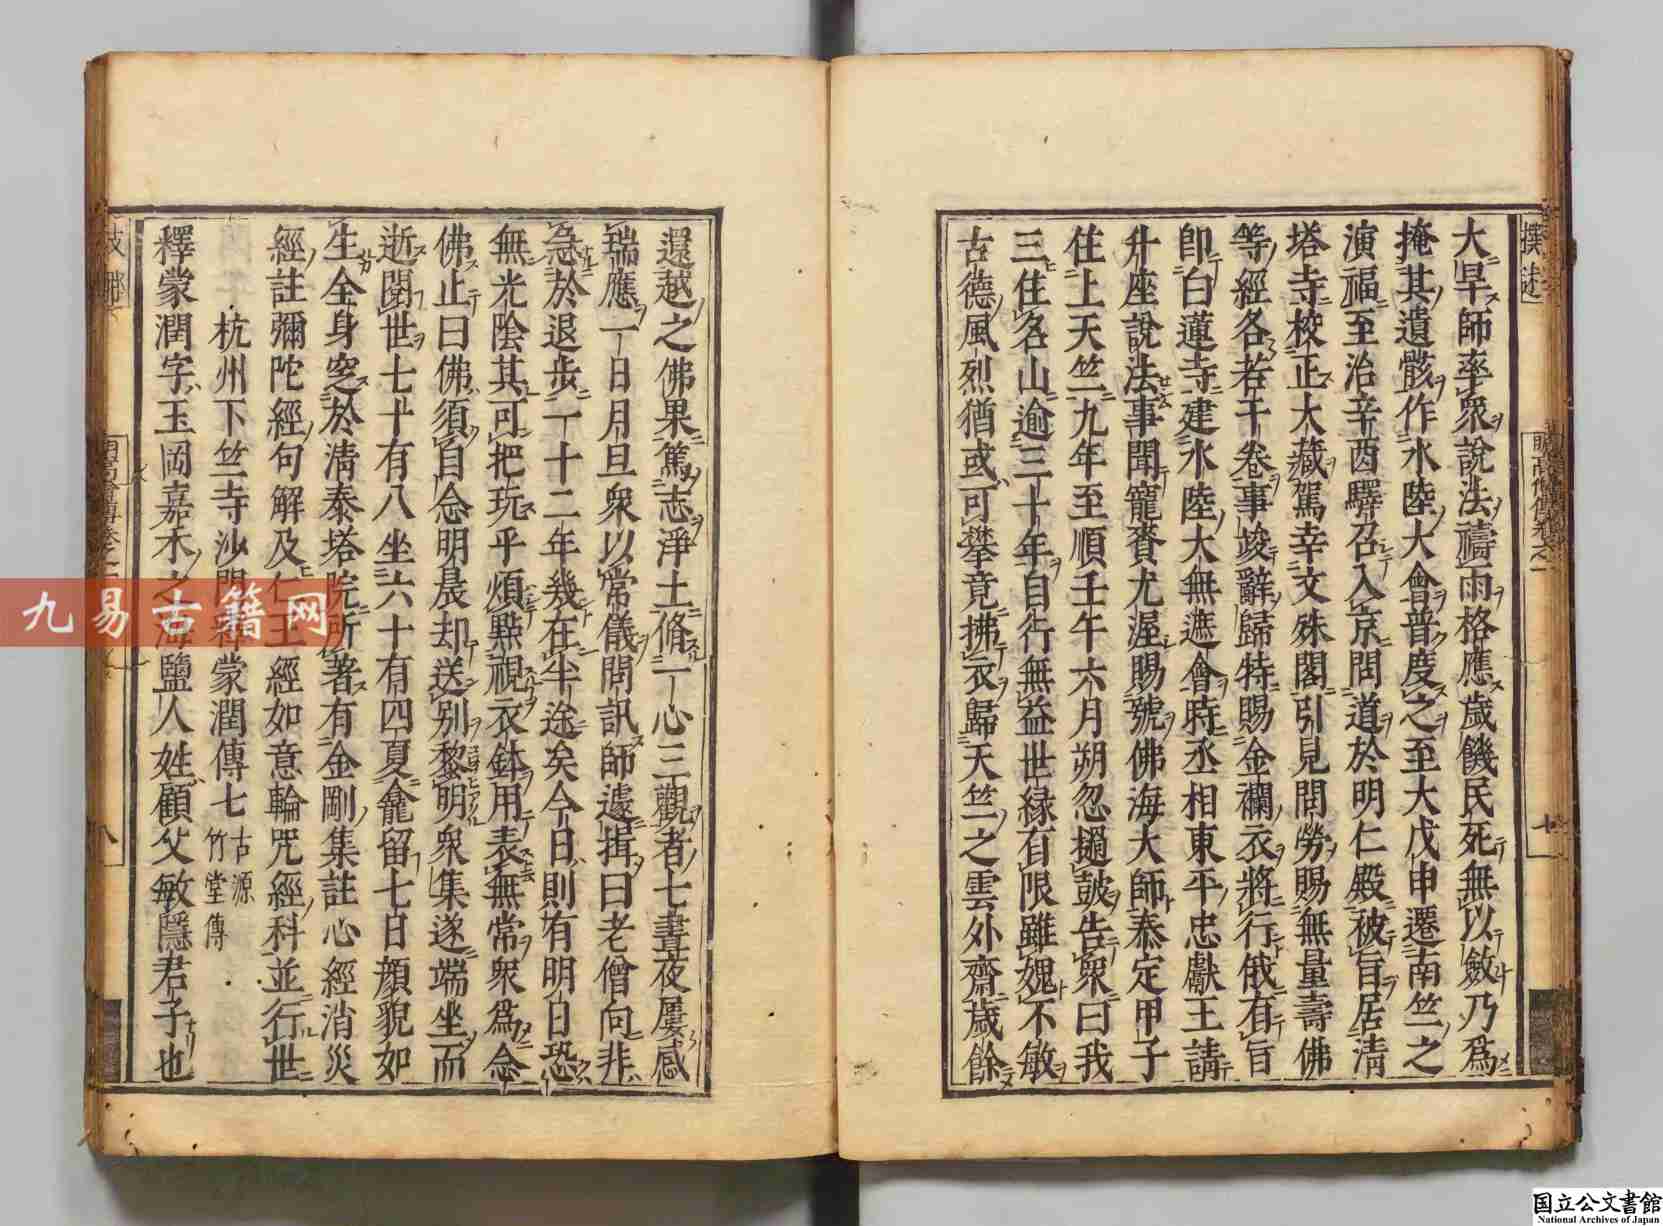 大旱師率衆說法禱雨格應歲饑民死無以斂乃爲
掩其遺骸作水陸大會普度之至大戊申遷南竺之
演福至治辛酉驛召入京問道於明仁殿被旨居清
塔寺校正大藏駕幸文殊閣引見問勞賜無量壽佛
等經各若干卷事竣辭歸特賜金襴衣將行俄有旨
即白蓮寺建水陸大無遮會時丞相東平忠獻王請
升座說法事聞寵賚尤渥賜號佛海大師泰定甲子
住上天竺九年至順壬午六月朔忽撾鼓告衆曰我
三住名山逾三十年自行無益世緣有限雖媿不敏
古德風烈猶或可攀竟拂衣歸天竺之雲外齋歲餘
還越之佛果篤志淨土脩一心三觀者七晝夜屢感
瑞應一日月旦衆以常儀問訊師遽揖曰老僧向非
急於退步一十二年幾在半途矣今日則有明日恐
無光陰其可把玩乎煩點視衣鉢用表無常衆爲念
佛止曰佛須自念明晨却送別黎明衆集遂端坐而
逝閱世七十有八坐六十有四夏龕留七日顏貌如
生全身窆於清泰塔院所著有金剛集註心經消災
經註彌陀經句解及仁王經如意輪咒經科並行世
杭州下竺寺沙門釋蒙潤傳七 古源 竹堂傳
釋蒙潤字玉岡嘉禾之海鹽人姓顧父敏隱君子也
九易古籍网
国立公文書館
National Archives of Japan